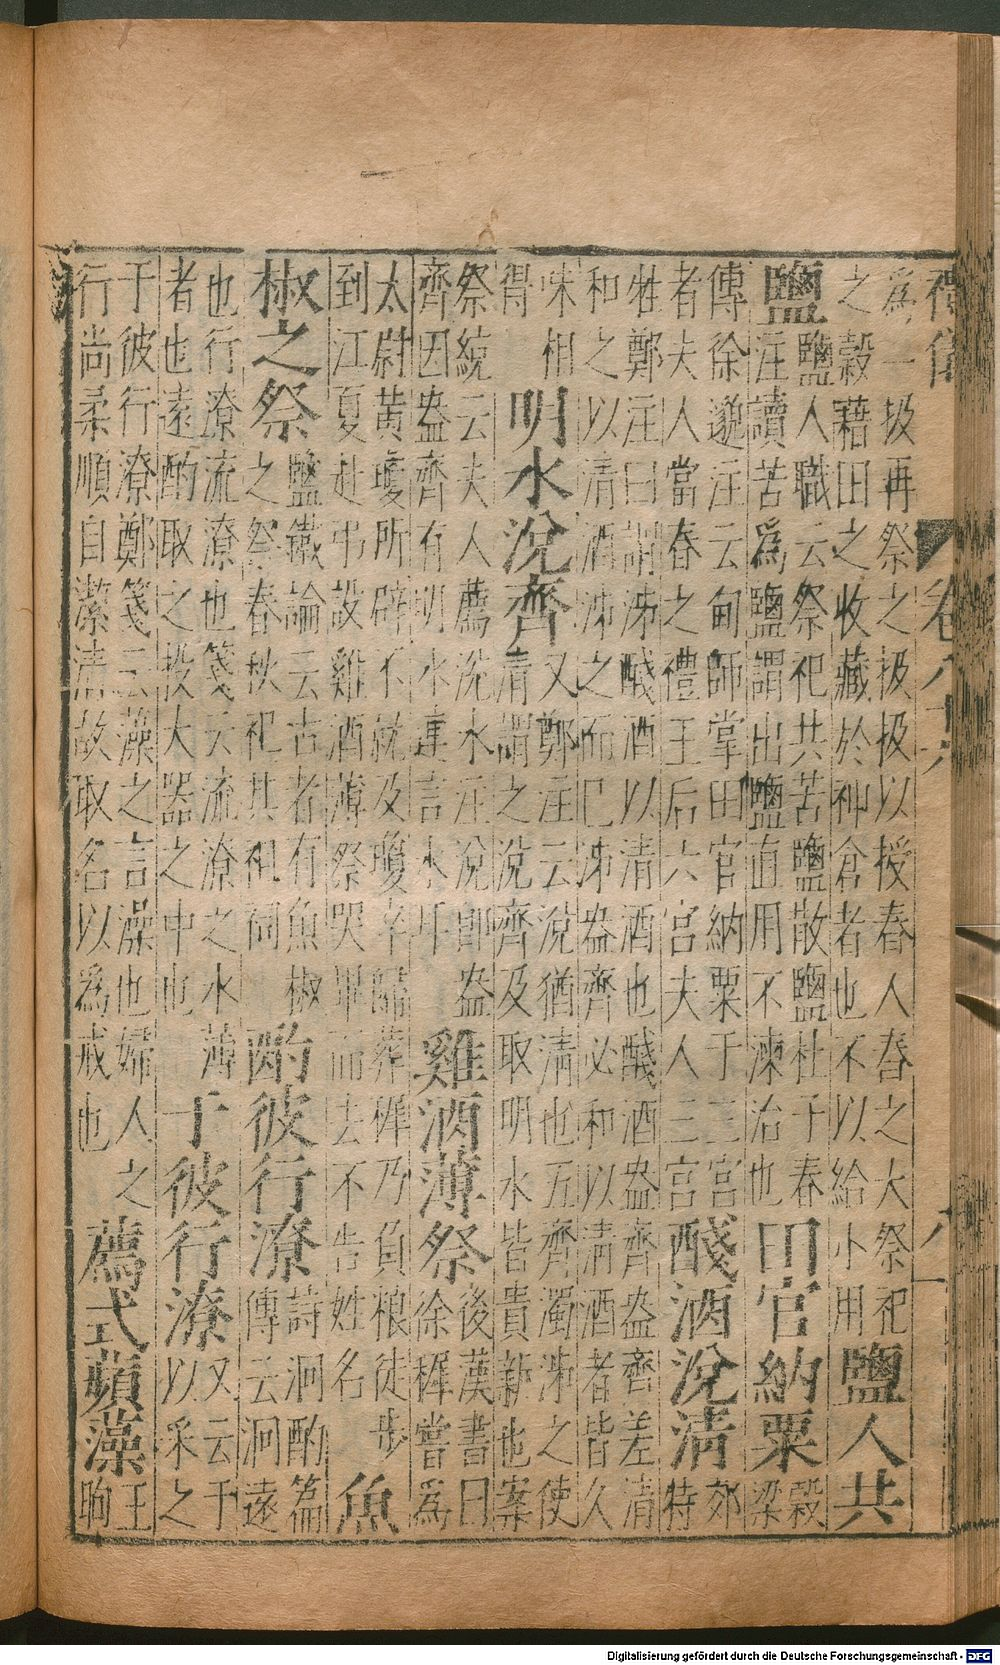 為一扱再祭之扱扱以授舂人舂之大祭祀
之穀藉田之收藏於神倉者也不以給小用
鹽人共
鹽
鹽人職云祭祀共苦鹽散鹽杜子春
注讀苦為鹽謂出鹽直用不湅治也
田官納粟
穀
梁
傳徐邈注云甸師掌田官納粟于三宮
者夫人當春之禮王后六宮夫人三宮
醆酒涗清
郊
特
牲鄭注曰謂泲醆酒以清酒也醆酒盎齊盎齊差清
和之以清酒泲之而已泲盎齊必和以清酒者皆久
味相
得
明水涗齊
又鄭注云涗猶清也五齊濁泲之使
清謂之涗齊及取明水皆貴新也案
祭統云夫人薦涗水注涗即盎
齊因盎齊有明水連言水耳
雞酒薄祭
後漢書曰
徐樨嘗為
太尉黃瓊所辟不就及瓊卒歸葬樨乃負粮徒步
到江夏赴弔設雞酒薄祭哭畢而去不告姓名
魚
椒之祭
鹽鐵論云古者有魚椒
之祭春秋祀其祖祠
酌彼行潦
詩泂酌篇
傳云泂遠
也行潦流潦也箋云流潦之水薄
者也遠酌取之投大器之中也
于彼行潦
又云于
以采之
于彼行潦鄭箋云藻之言澡也婦人之
行尚柔順自潔清故取名以為戒也
薦式蘋藻
王
晌
Digitalisierung gefördert durch die Deutsche Forschungsgemeinschaft - DFG